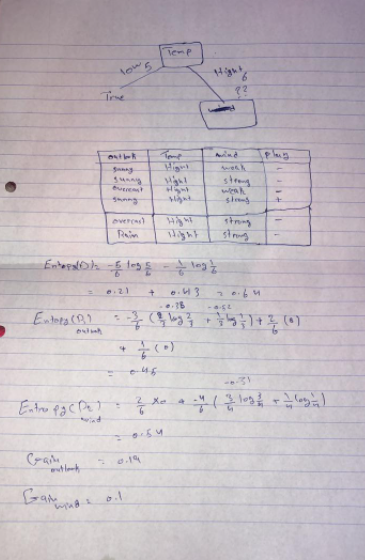 Temp
low 5
Hight
6
??
True
wind
outlook Temp wind play
sunny Hight weak -
sunny Hight strong -
overcast Hight weak -
sunny Hight strong +
overcast Hight strong -
Rain Hight strong -
Entropy(D) = -5/6 log 5/6 - 1/6 log 1/6
= 0.21 + 0.43 = 0.64
-0.38 -0.52
Entropy(D) = -3/6 (2/3 log 2/3 + 1/3 log 1/3) + 2/6 (0)
outlook
+ 1/6 (0)
= 0.45
-0.31
Entropy(D) = 2/6 × 0 + -4/6 (3/4 log 3/4 + 1/4 log 1/4)
wind
= 0.54
Gain outlook = 0.19
Gain wind = 0.1